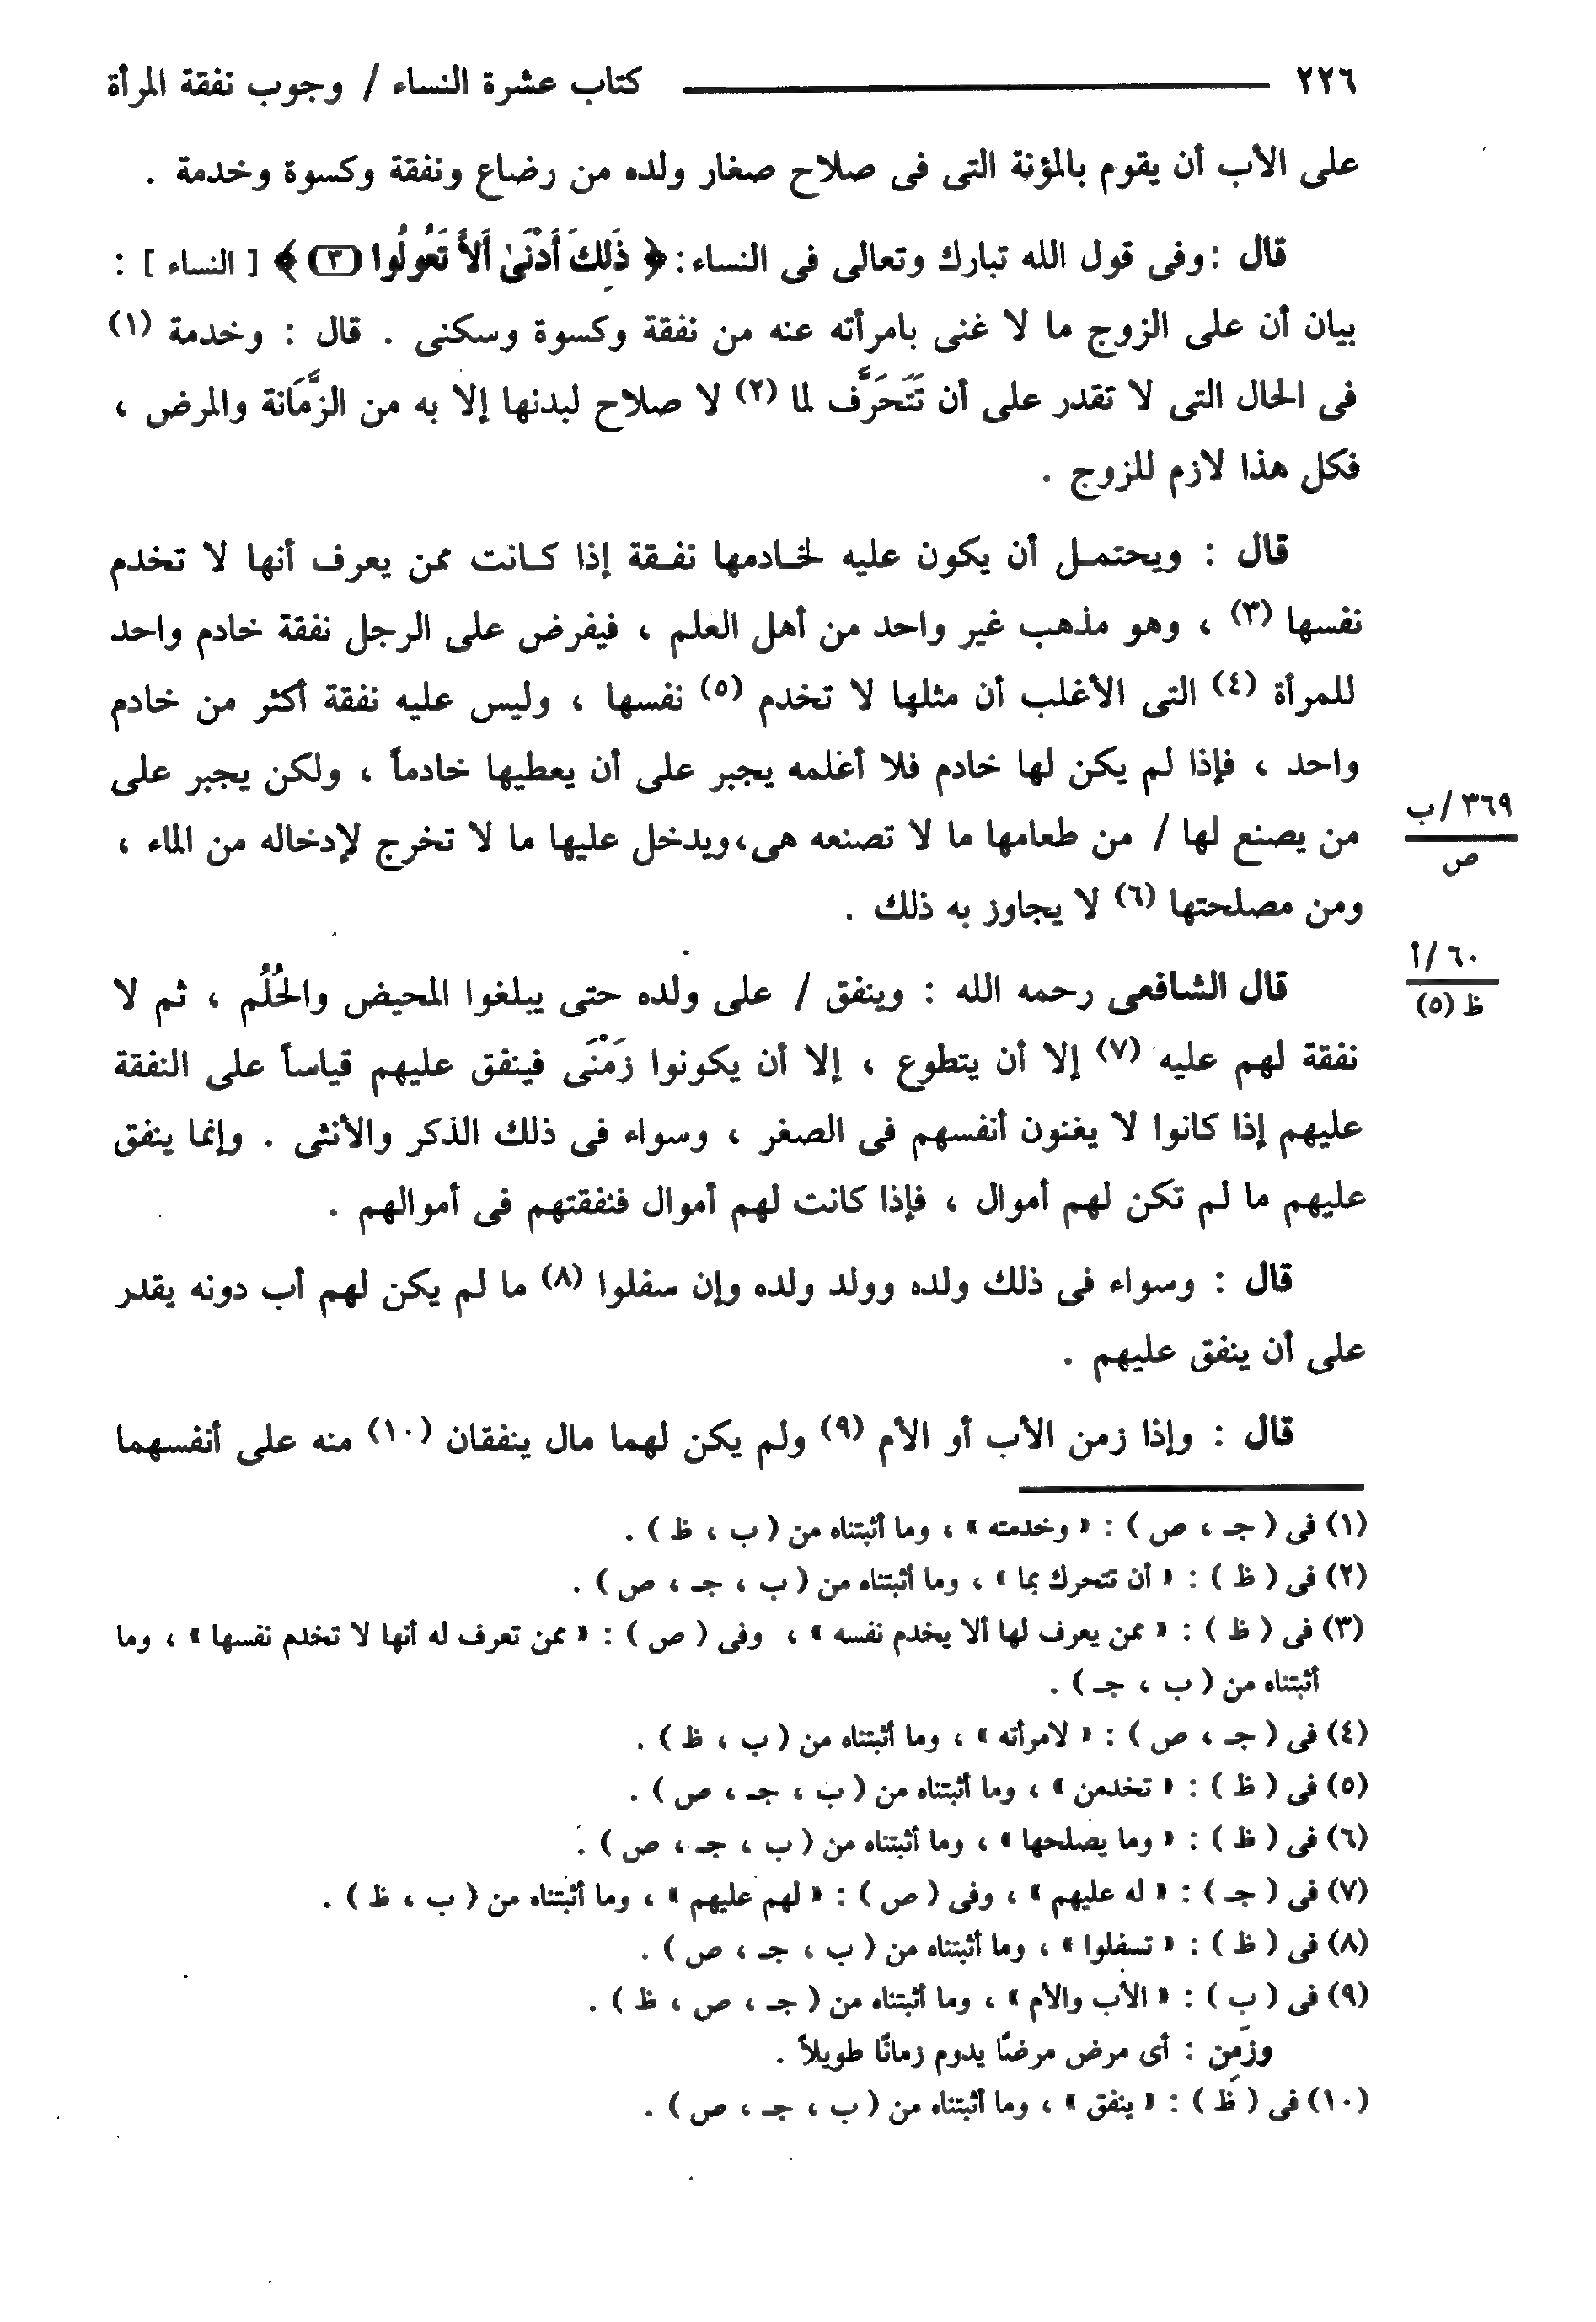 ٢٢٦ كتاب عشرة النساء / وجوب نفقة المرأة
على الأب أن يقوم بالمؤنة التى فى صلاح صغار ولده من رضاع ونفقة وكسوة وخدمة .
قال : وفى قول الله تبارك وتعالى فى النساء : ﴿ ذَلِكَ أَدْنَىٰ أَلاَّ تَعُولُوا (٣) ﴾ [ النساء ] :
بيان أن على الزوج ما لا غنى بامرأته عنه من نفقة وكسوة وسكنى . قال : وخدمة (١)
فى الحال التى لا تقدر على أن تَتَحَرَّف لما (٢) لا صلاح لبدنها إلا به من الزَّمَانة والمرض ،
فكل هذا لازم للزوج .
قال : ويحتمل أن يكون عليه لخادمها نفقة إذا كانت ممن يعرف أنها لا تخدم
نفسها (٣) ، وهو مذهب غير واحد من أهل العلم ، فيفرض على الرجل نفقة خادم واحد
للمرأة (٤) التى الأغلب أن مثلها لا تخدم (٥) نفسها ، وليس عليه نفقة أكثر من خادم
واحد ، فإذا لم يكن لها خادم فلا أعلمه يجبر على أن يعطيها خادماً ، ولكن يجبر على
٣٦٩/ب
من يصنع لها / من طعامها ما لا تصنعه هى، ويدخل عليها ما لا تخرج لإدخاله من الماء ،
ص
ومن مصلحتها (٦) لا يجاوز به ذلك .
٦٠/أ
قال الشافعى رحمه الله : وينفق / على ولده حتى يبلغوا المحيض والحُلُم ، ثم لا
ظ (٥)
نفقة لهم عليه (٧) إلا أن يتطوع ، إلا أن يكونوا زَمْنَى فينفق عليهم قياساً على النفقة
عليهم إذا كانوا لا يغنون أنفسهم فى الصغر ، وسواء فى ذلك الذكر والأنثى . وإنما ينفق
عليهم ما لم تكن لهم أموال ، فإذا كانت لهم أموال فنفقتهم فى أموالهم .
قال : وسواء فى ذلك ولده وولد ولده وإن سفلوا (٨) ما لم يكن لهم أب دونه يقدر
على أن ينفق عليهم .
قال : وإذا زمن الأب أو الأم (٩) ولم يكن لهما مال ينفقان (١٠) منه على أنفسهما
(١) فى ( جـ ، ص ) : « وخدمته » ، وما أثبتناه من ( ب ، ظ ) .
(٢) فى ( ظ ) : « أن تتحرك بما » ، وما أثبتناه من ( ب ، جـ ، ص ) .
(٣) فى ( ظ ) : « ممن يعرف لها ألا يخدم نفسه » ، وفى ( ص ) : « ممن تعرف له أنها لا تخدم نفسها » ، وما
أثبتناه من ( ب ، جـ ) .
(٤) فى ( جـ ، ص ) : « لامرأته » ، وما أثبتناه من ( ب ، ظ ) .
(٥) فى ( ظ ) : « تخدمن » ، وما أثبتناه من ( ب ، جـ ، ص ) .
(٦) فى ( ظ ) : « وما يصلحها » ، وما أثبتناه من ( ب ، جـ ، ص ) .
(٧) فى ( جـ ) : « له عليهم » ، وفى ( ص ) : « لهم عليهم » ، وما أثبتناه من ( ب ، ظ ) .
(٨) فى ( ظ ) : « تسفلوا » ، وما أثبتناه من ( ب ، جـ ، ص ) .
(٩) فى ( ب ) : « الأب والأم » ، وما أثبتناه من ( جـ ، ص ، ظ ) .
وزَمِن : أى مرض مرضًا يدوم زمانًا طويلاً .
(١٠) فى ( ظ ) : « ينفق » ، وما أثبتناه من ( ب ، جـ ، ص ) .